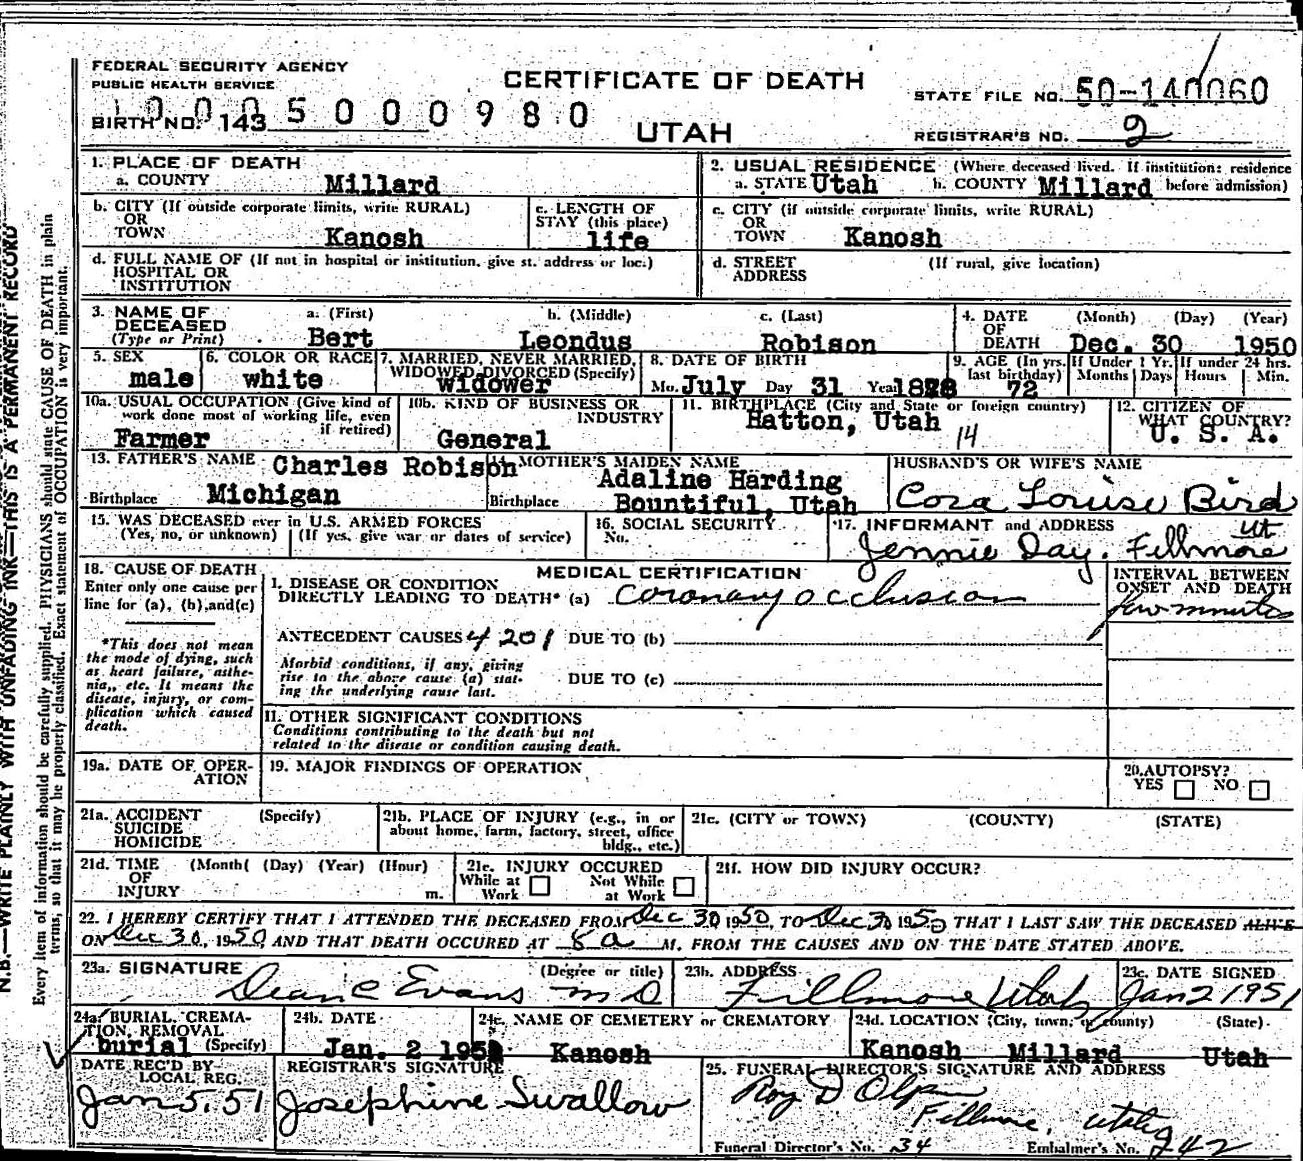 FEDERAL SECURITY AGENCY
PUBLIC HEALTH SERVICE
CERTIFICATE OF DEATH
STATE FILE NO. 50-140060
10005000980
BIRTH NO. 143
UTAH
REGISTRAR'S NO. 2
1. PLACE OF DEATH
a. COUNTY Millard
2. USUAL RESIDENCE (Where deceased lived. If institution: residence before admission)
a. STATE Utah b. COUNTY Millard
b. CITY (If outside corporate limits, write RURAL)
OR
TOWN Kanosh
c. LENGTH OF
STAY (this place)
life
c. CITY (if outside corporate limits, write RURAL)
OR
TOWN Kanosh
d. FULL NAME OF (If not in hospital or institution, give st. address or loc.)
HOSPITAL OR
INSTITUTION
d. STREET (If rural, give location)
ADDRESS
3. NAME OF
DECEASED
(Type or Print)
a. (First) b. (Middle) c. (Last)
Bert Leondus Robison
4. DATE (Month) (Day) (Year)
OF
DEATH Dec. 30 1950
5. SEX
male
6. COLOR OR RACE
white
7. MARRIED, NEVER MARRIED,
WIDOWED, DIVORCED (Specify)
widower
8. DATE OF BIRTH
Mo. July Day 31 Year 1878
9. AGE (In yrs. last birthday)
72
If Under 1 Yr.
Months Days
If under 24 hrs.
Hours Min.
10a. USUAL OCCUPATION (Give kind of
work done most of working life, even
if retired)
Farmer
10b. KIND OF BUSINESS OR
INDUSTRY
General
11. BIRTHPLACE (City and State or foreign country)
Hatton, Utah 14
12. CITIZEN OF
WHAT COUNTRY?
U. S. A.
13. FATHER'S NAME Charles Robison
Birthplace Michigan
14. MOTHER'S MAIDEN NAME
Adaline Harding
Birthplace Bountiful, Utah
HUSBAND'S OR WIFE'S NAME
Cora Louise Bird
15. WAS DECEASED ever in U.S. ARMED FORCES
(Yes, no, or unknown) (If yes, give war or dates of service)
16. SOCIAL SECURITY
No.
17. INFORMANT and ADDRESS
Jennie Day. Fillmore Ut
18. CAUSE OF DEATH
Enter only one cause per
line for (a), (b), and (c)
*This does not mean
the mode of dying, such
as heart failure, asthe-
nia, etc. It means the
disease, injury, or com-
plication which caused
death.
MEDICAL CERTIFICATION
I. DISEASE OR CONDITION
DIRECTLY LEADING TO DEATH* (a) coronary occlusion
INTERVAL BETWEEN
ONSET AND DEATH
few minutes
ANTECEDENT CAUSES 4201 DUE TO (b)
Morbid conditions, if any, giving
rise to the above cause (a) stat-
ing the underlying cause last.
DUE TO (c)
II. OTHER SIGNIFICANT CONDITIONS
Conditions contributing to the death but not
related to the disease or condition causing death.
19a. DATE OF OPER-
ATION
19. MAJOR FINDINGS OF OPERATION
20. AUTOPSY?
YES NO
21a. ACCIDENT (Specify)
SUICIDE
HOMICIDE
21b. PLACE OF INJURY (e.g., in or
about home, farm, factory, street, office
bldg., etc.)
21c. (CITY or TOWN) (COUNTY) (STATE)
21d. TIME (Month( (Day) (Year) (Hour)
OF
INJURY m.
21e. INJURY OCCURED
While at Work Not While at Work
21f. HOW DID INJURY OCCUR?
22. I HEREBY CERTIFY THAT I ATTENDED THE DECEASED FROM Dec 30 1950, TO Dec 30 1950 THAT I LAST SAW THE DECEASED ALIVE
ON Dec 30, 1950 AND THAT DEATH OCCURED AT 8 a M. FROM THE CAUSES AND ON THE DATE STATED ABOVE.
23a. SIGNATURE (Degree or title)
Dean C Evans MD
23b. ADDRESS
Fillmore Utah
23c. DATE SIGNED
Jan 2 1951
24a. BURIAL, CREMA-
TION, REMOVAL
burial (Specify)
24b. DATE
Jan. 2 1951
24c. NAME OF CEMETERY or CREMATORY
Kanosh
24d. LOCATION (City, town, or county) (State)
Kanosh Millard Utah
DATE REC'D BY
LOCAL REG.
Jan 5, 51
REGISTRAR'S SIGNATURE
Josephine Swallow
25. FUNERAL DIRECTOR'S SIGNATURE AND ADDRESS
Roy D Olsen
Fillmore, Utah
Funeral Director's No. 34 Embalmer's No. 242
N.B.—WRITE PLAINLY WITH UNFADING INK—THIS IS A PERMANENT RECORD
Every item of information should be carefully supplied. PHYSICIANS should state CAUSE OF DEATH in plain
terms, so that it may be properly classified. Exact statement of OCCUPATION is very important.